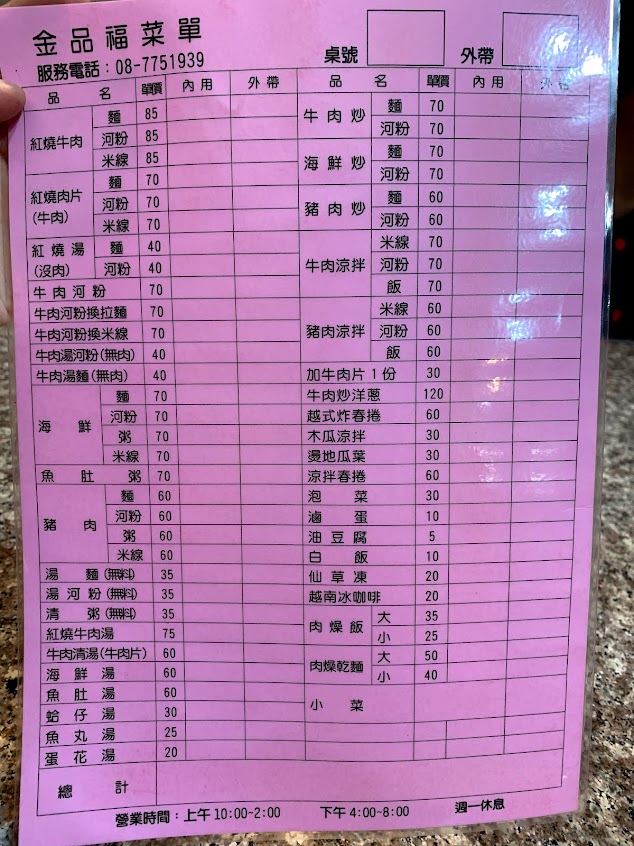 金品福菜單
服務電話：08-7751939
桌號 外帶
品名 單價 內用 外帶
紅燒牛肉 麵 85
河粉 85
米線 85
紅燒肉片(牛肉) 麵 70
河粉 70
米線 70
紅燒湯(沒肉) 麵 40
河粉 40
牛肉河粉 70
牛肉河粉換拉麵 70
牛肉河粉換米線 70
牛肉湯河粉(無肉) 40
牛肉湯麵(無肉) 40
海鮮 麵 70
河粉 70
粥 70
米線 70
魚肚粥 70
豬肉 麵 60
河粉 60
粥 60
米線 60
湯麵(無料) 35
湯河粉(無料) 35
清粥(無料) 35
紅燒牛肉湯 75
牛肉清湯(牛肉片) 60
海鮮湯 60
魚肚湯 60
蛤仔湯 30
魚丸湯 25
蛋花湯 20
總計
品名 單價 內用 外帶
牛肉炒 麵 70
河粉 70
海鮮炒 麵 70
河粉 70
豬肉炒 麵 60
河粉 60
牛肉涼拌 米線 70
河粉 70
飯 70
豬肉涼拌 米線 60
河粉 60
飯 60
加牛肉片1份 30
牛肉炒洋蔥 120
越式炸春捲 60
木瓜涼拌 30
燙地瓜葉 30
涼拌春捲 60
泡菜 30
滷蛋 10
油豆腐 5
白飯 10
仙草凍 20
越南冰咖啡 20
肉燥飯 大 35
小 25
肉燥乾麵 大 50
小 40
小菜
營業時間：上午10:00-2:00 下午4:00-8:00 週一休息